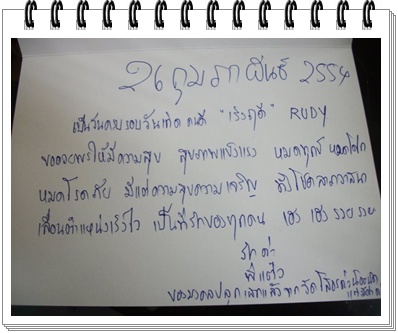 2 กุมภาพันธ์ 2554
เป็นวันครบรอบวันเกิด คนดี "เริงฤดี" RUDY
ขออวยพรให้มีความสุข สุขภาพแข็งแรง หมดทุกข์ หมดโศก
หมดโรคภัย มีแต่ความสุขความเจริญ มีโชคลาภวาสนา
เลื่อนตำแหน่งเร็วไว เป็นที่รักของทุกคน เฮง เฮง รวย รวย
รักค่ะ
พี่แต๋ว
ของมงคลปลุกเสกแล้วจากวัด